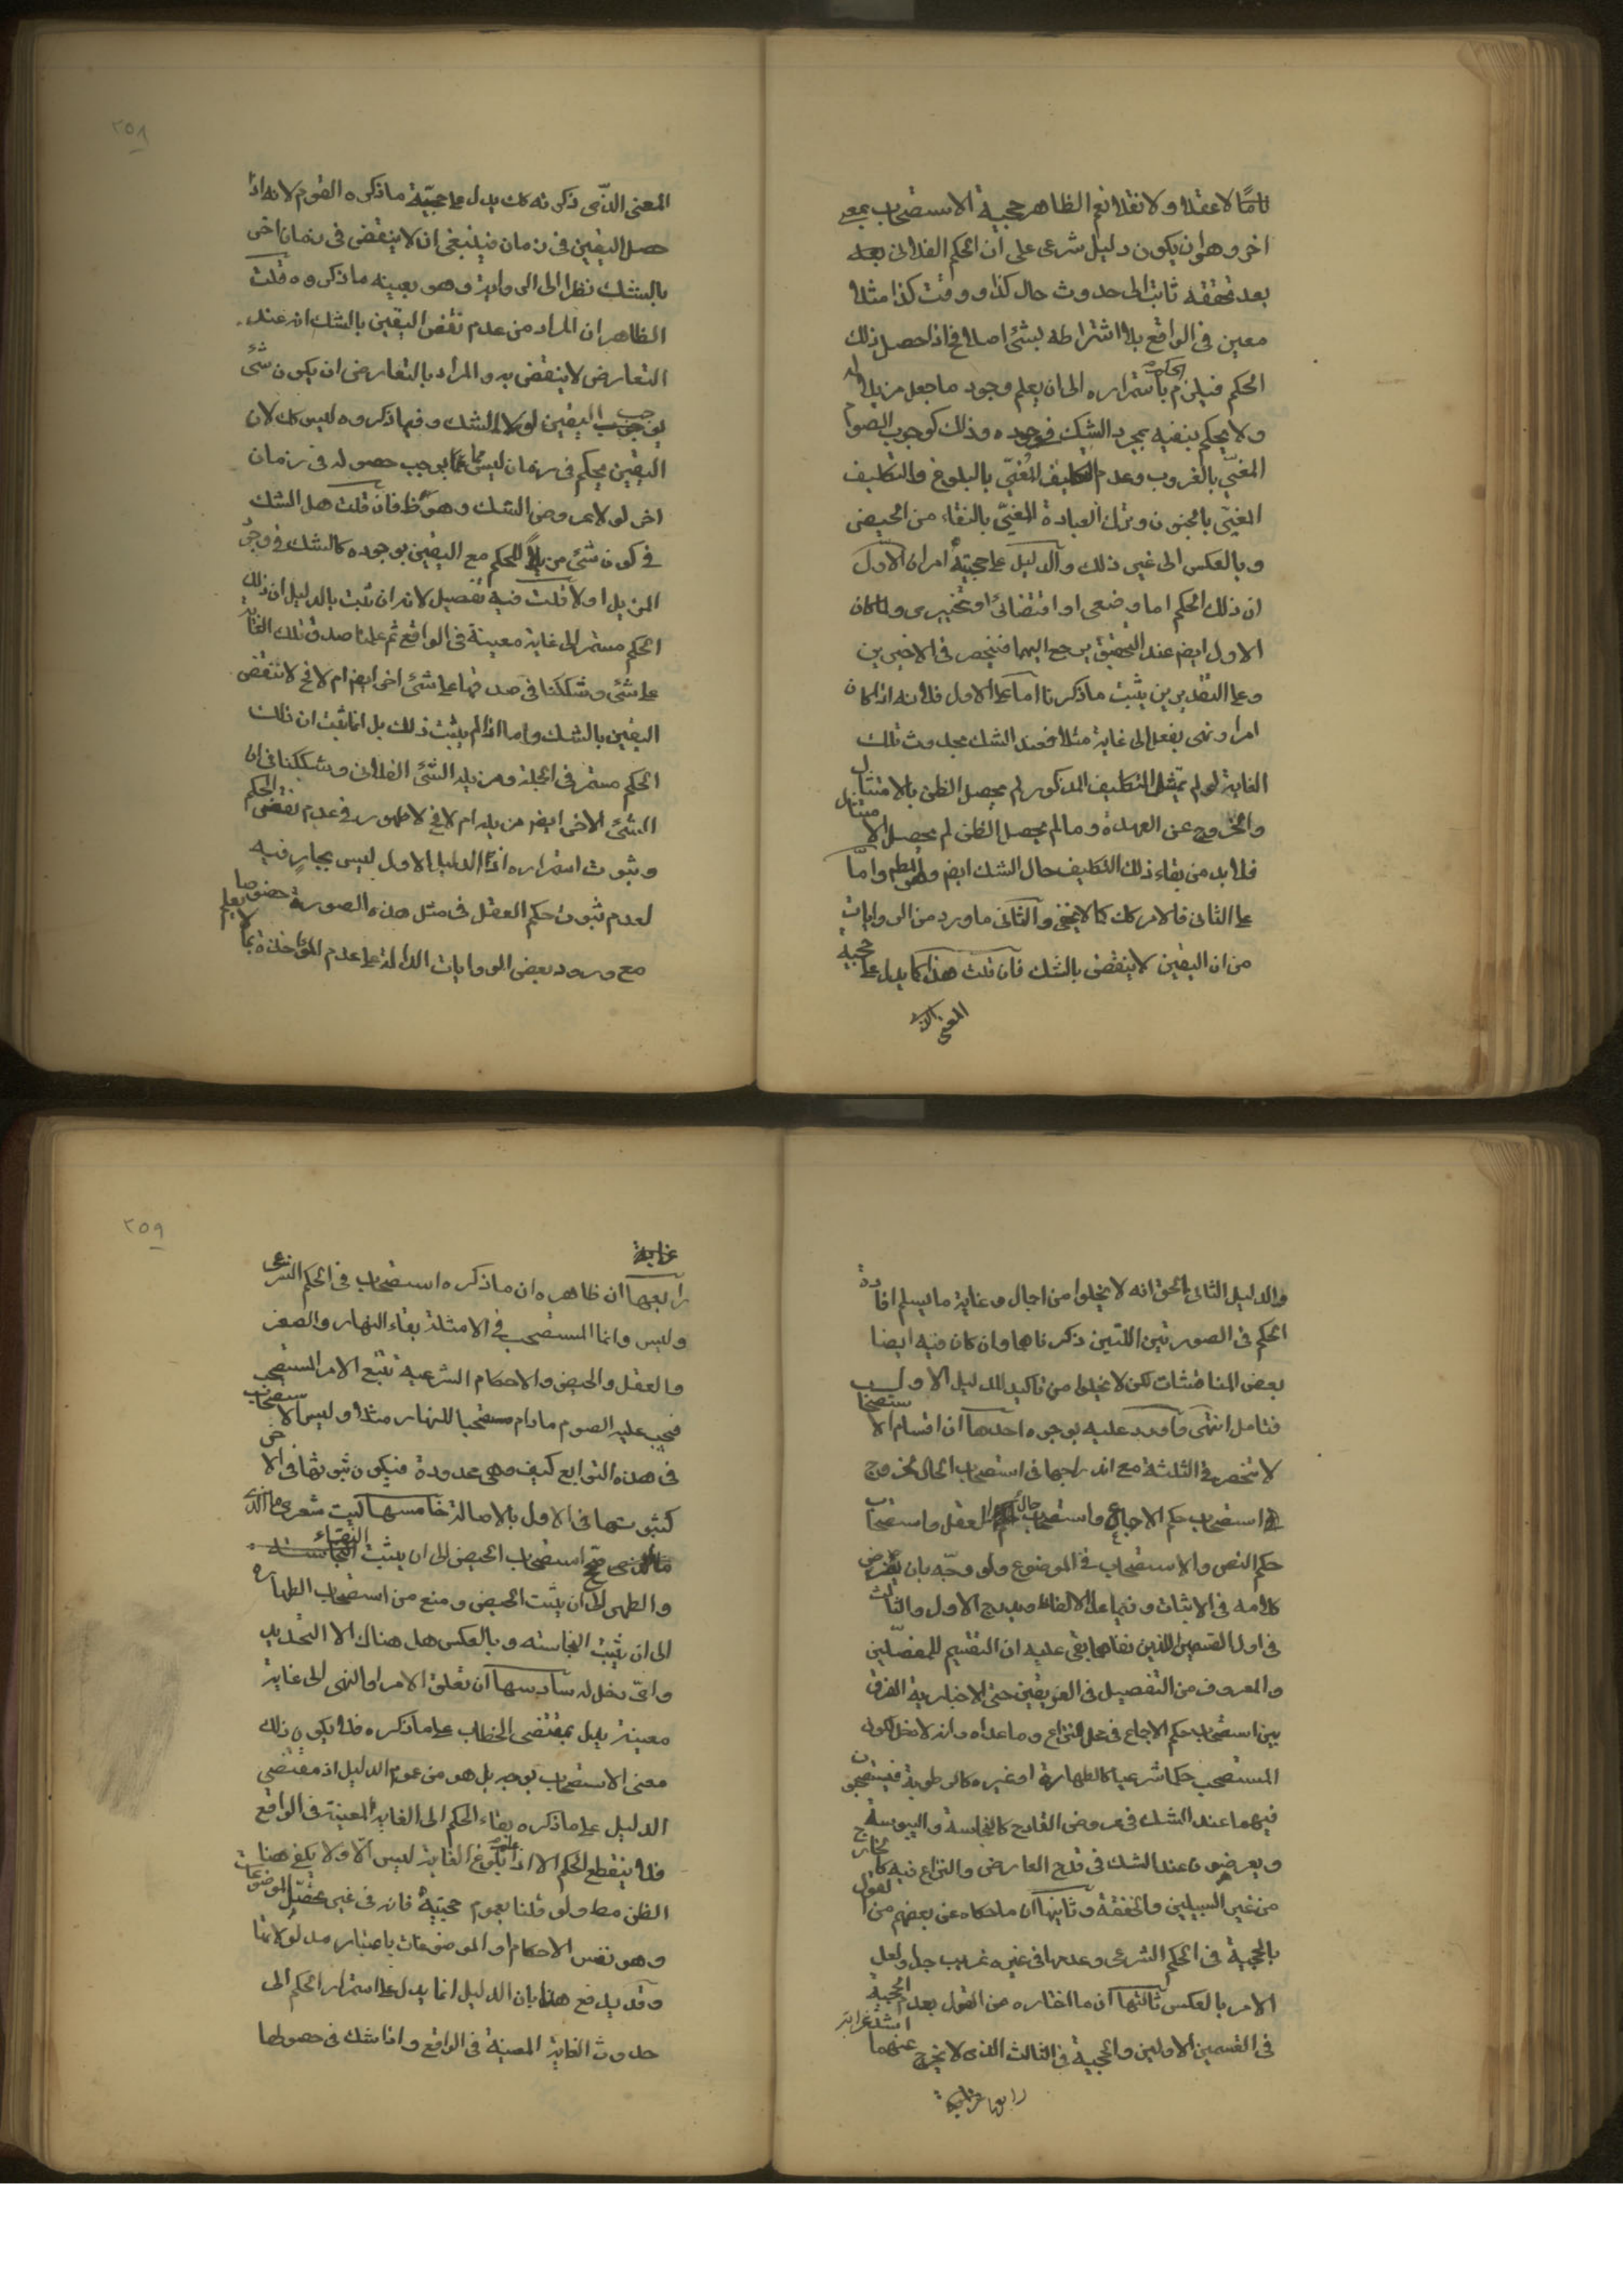 تامّا لا عقلا ولا نقلا نعم الظاهر حجية الاستصحاب بمعنى
اخر وهو ان يكون دليل شرعى على ان الحكم الفلانى بعد
بعد تحققه ثابت الى حدوث حال كذا و وقت كذا مثلا
معين فى الواقع بلا اشتراطه بشئ اصلا فح اذا حصل ذلك
الحكم فيلزم الحكم باستمراره الى ان يعلم وجود ما جعل مزيلا له
ولا يحكم بنفيه بمجرد الشك فى وجوده وذلك كوجوب الصوم
المغيّى بالغروب وعدم التكليف المُغيّى بالبلوغ والتكليف
المغيّى بالجنون وترك العبادة المغيّى بالنقاء من الحيض
وبالعكس الى غير ذلك والدليل على حجيته امران الاول
ان ذلك الحكم اما وضعى او اقتضائى او تخييرى ولما كان
الاول ايضم عند التحقيق يرجع اليهما فينحصر فى الاخيرين
وعلى التقديرين يثبت ما ذكرنا اما على الاول فلانه اذا كان
امر او نهى بفعل الى غاية مثلا فعند الشك بحدوث تلك
الغاية لو لم يمتثل التكليف المذكور لم يحصل الظن بالامتثال
والخروج عن العهدة وما لم يحصل الظن لم يحصل الامتثال
فلا بد من بقاء ذلك التكليف حال الشك ايضم وهو المطلم وامّا
على الثانى فالامر كك كما لا يخفى والثانى ما ورد من الروايات
من ان اليقين لا ينقض بالشك فان قلت هذا كما يدل على حجية
المعنى الذى
٢٥٨
المعنى الذّى ذكرته كك يدل على حجيّة ما ذكره القوم لانه اذا
حصل اليقين فى زمان فينبغى ان لا ينقض فى زمان اخر
بالشك نظرا الى الرواية وهو بعينه ما ذكروه قلت
الظاهر ان المراد من عدم نقض اليقين بالشك انه عند
التعارض لا ينقض به والمراد بالتعارض ان يكون شئ
يوجب اليقين لولا الشك وفيما ذكروه ليس كك لان
اليقين بحكم فى زمان ليس مما يوجب حصوله فى زمان
اخر لولا عروض الشك وهو ظ فان قلت هل الشك
فى كون شئ مزيلا للحكم مع اليقين بوجوده كالشك فى وجود
المزيل او لا قلت فيه تفصيل لانه ان ثبت بالدليل ان ذلك
الحكم مستمر الى غاية معينة فى الواقع ثم علمنا صدق تلك الغاية
على شئ وشككنا فى صدقها على شئ اخر ايضم ام لا فح لا ننقض
اليقين بالشك واما اذا لم يثبت ذلك بل انما ثبت ان ذلك
الحكم مستمر فى الجملة ومزيله الشئ الفلانى وشككنا فى ان
الشئ الاخر ايضم مزيله ام لا فح لا ظهور فى عدم نقض الحكم
وثبوت استمراره اذ الدليل الاول ليس بجارٍ فيه
لعدم ثبوت حكم العقل فى مثل هذه الصورة خصوصا
مع ورود بعض الروايات الدالة على عدم المؤاخذة بما لا يعلم
والدليل الثانى الحق انه لا يخلوا من اجمال وغاية ما يسلم افادة
الحكم فى الصورتين اللتين ذكرناها وان كان فيه ايضا
بعض المناقشات لكن لا يخلوا من تاكيد للدليل الاول
فتامل انتهى واورد عليه بوجوه احدها ان اقسام الاستصحاب
لا تنحصر فى الثلثة مع اندراجها فى استصحاب الحال لخروج
استصحاب حكم الاجماع واستصحاب حال العقل واستصحاب
حكم النص والاستصحاب فى الموضوع ولو وجّه بان يفرض
كلامه فى الاثبات وفيما عدا الالفاظ ويدرج الاول والثالث
فى اول القسمين اللذين نفاهما بقى عليه ان التقسيم للمفصّلين
والمعروف من التفصيل فى الفريقين حتى الاخبارية الفرق
بين استصحاب حكم الاجماع فى محل النزاع وما عداه وانه لا دخل لكون
المستصحب حكما شرعيا كالطهارة او غيره كالرطوبة فيستصحبون
فيهما عند الشك فى عروض القادح كالنجاسة واليبوسة
ويعرضون عند الشك فى قدح العارض والنزاع فيه كالخارج
من غير السبيلين والخفقة وثانيها ان ما حكاه عن بعضهم من القول
بالحجية فى الحكم الشرعى وعدمها فى غيره غريب جدا ولعل
الامر بالعكس ثالثها ان ما اختاره من القول بعدم الحجية
فى القسمين الاولين والحجية فى الثالث الذى لا يخرج عنهما اشد غرابة
رابعها
٢٥٩
غرابة
رابعها ان ظاهره ان ما ذكره استصحاب فى الحكم الشرعى
وليس وانما المستصحب فى الامثلة بقاء النهار والصغر
والعقل والحيض والاحكام الشرعية تتبع الامر المستصحب
فيجب عليه الصوم مادام مستصحبا للنهار مثلا وليس الاستصحاب
فى هذه التوابع كيف وهى محدودة فيكون ثبوتها فى الاخر
كثبوتها فى الاول بالاصالة خامسها ليت شعرى ما الذى
استصحاب الحيض الى ان يثبت النقاء
والطهر الى ان يثبت الحيض ومنع من استصحاب الطهارة
الى ان يثبت النجاسته وبالعكس هل هناك الا التحديد
واىّ دخل له سادسها ان تعلق الامر او النهى الى غاية
معينة يدل بمقتضى الخطاب على ما ذكره فلا يكون ذلك
معنى الاستصحاب بوجه بل هو من عموم الدليل اذ مقتضى
الدليل على ما ذكره بقاء الحكم الى الغاية المعينة فى الواقع
فلا ينقطع الحكم الا اذا علم بلوغ الغاية ليس الّا ولا يكفى هنا
الظن مط ولو قلنا بعموم حجيته فانه فى غير محصّل الموضوعات
وهو نفس الاحكام او الموضوعات باعتبار مدلولاتها
وقد يدفع هذا بان الدليل انما يدل على استمرار الحكم الى
حدوث الغاية المعينة فى الواقع واذا شك فى حصولها